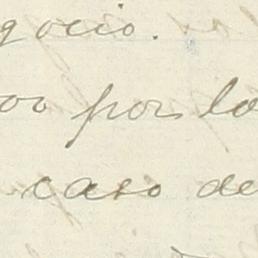 gocio.
por lo
caso de